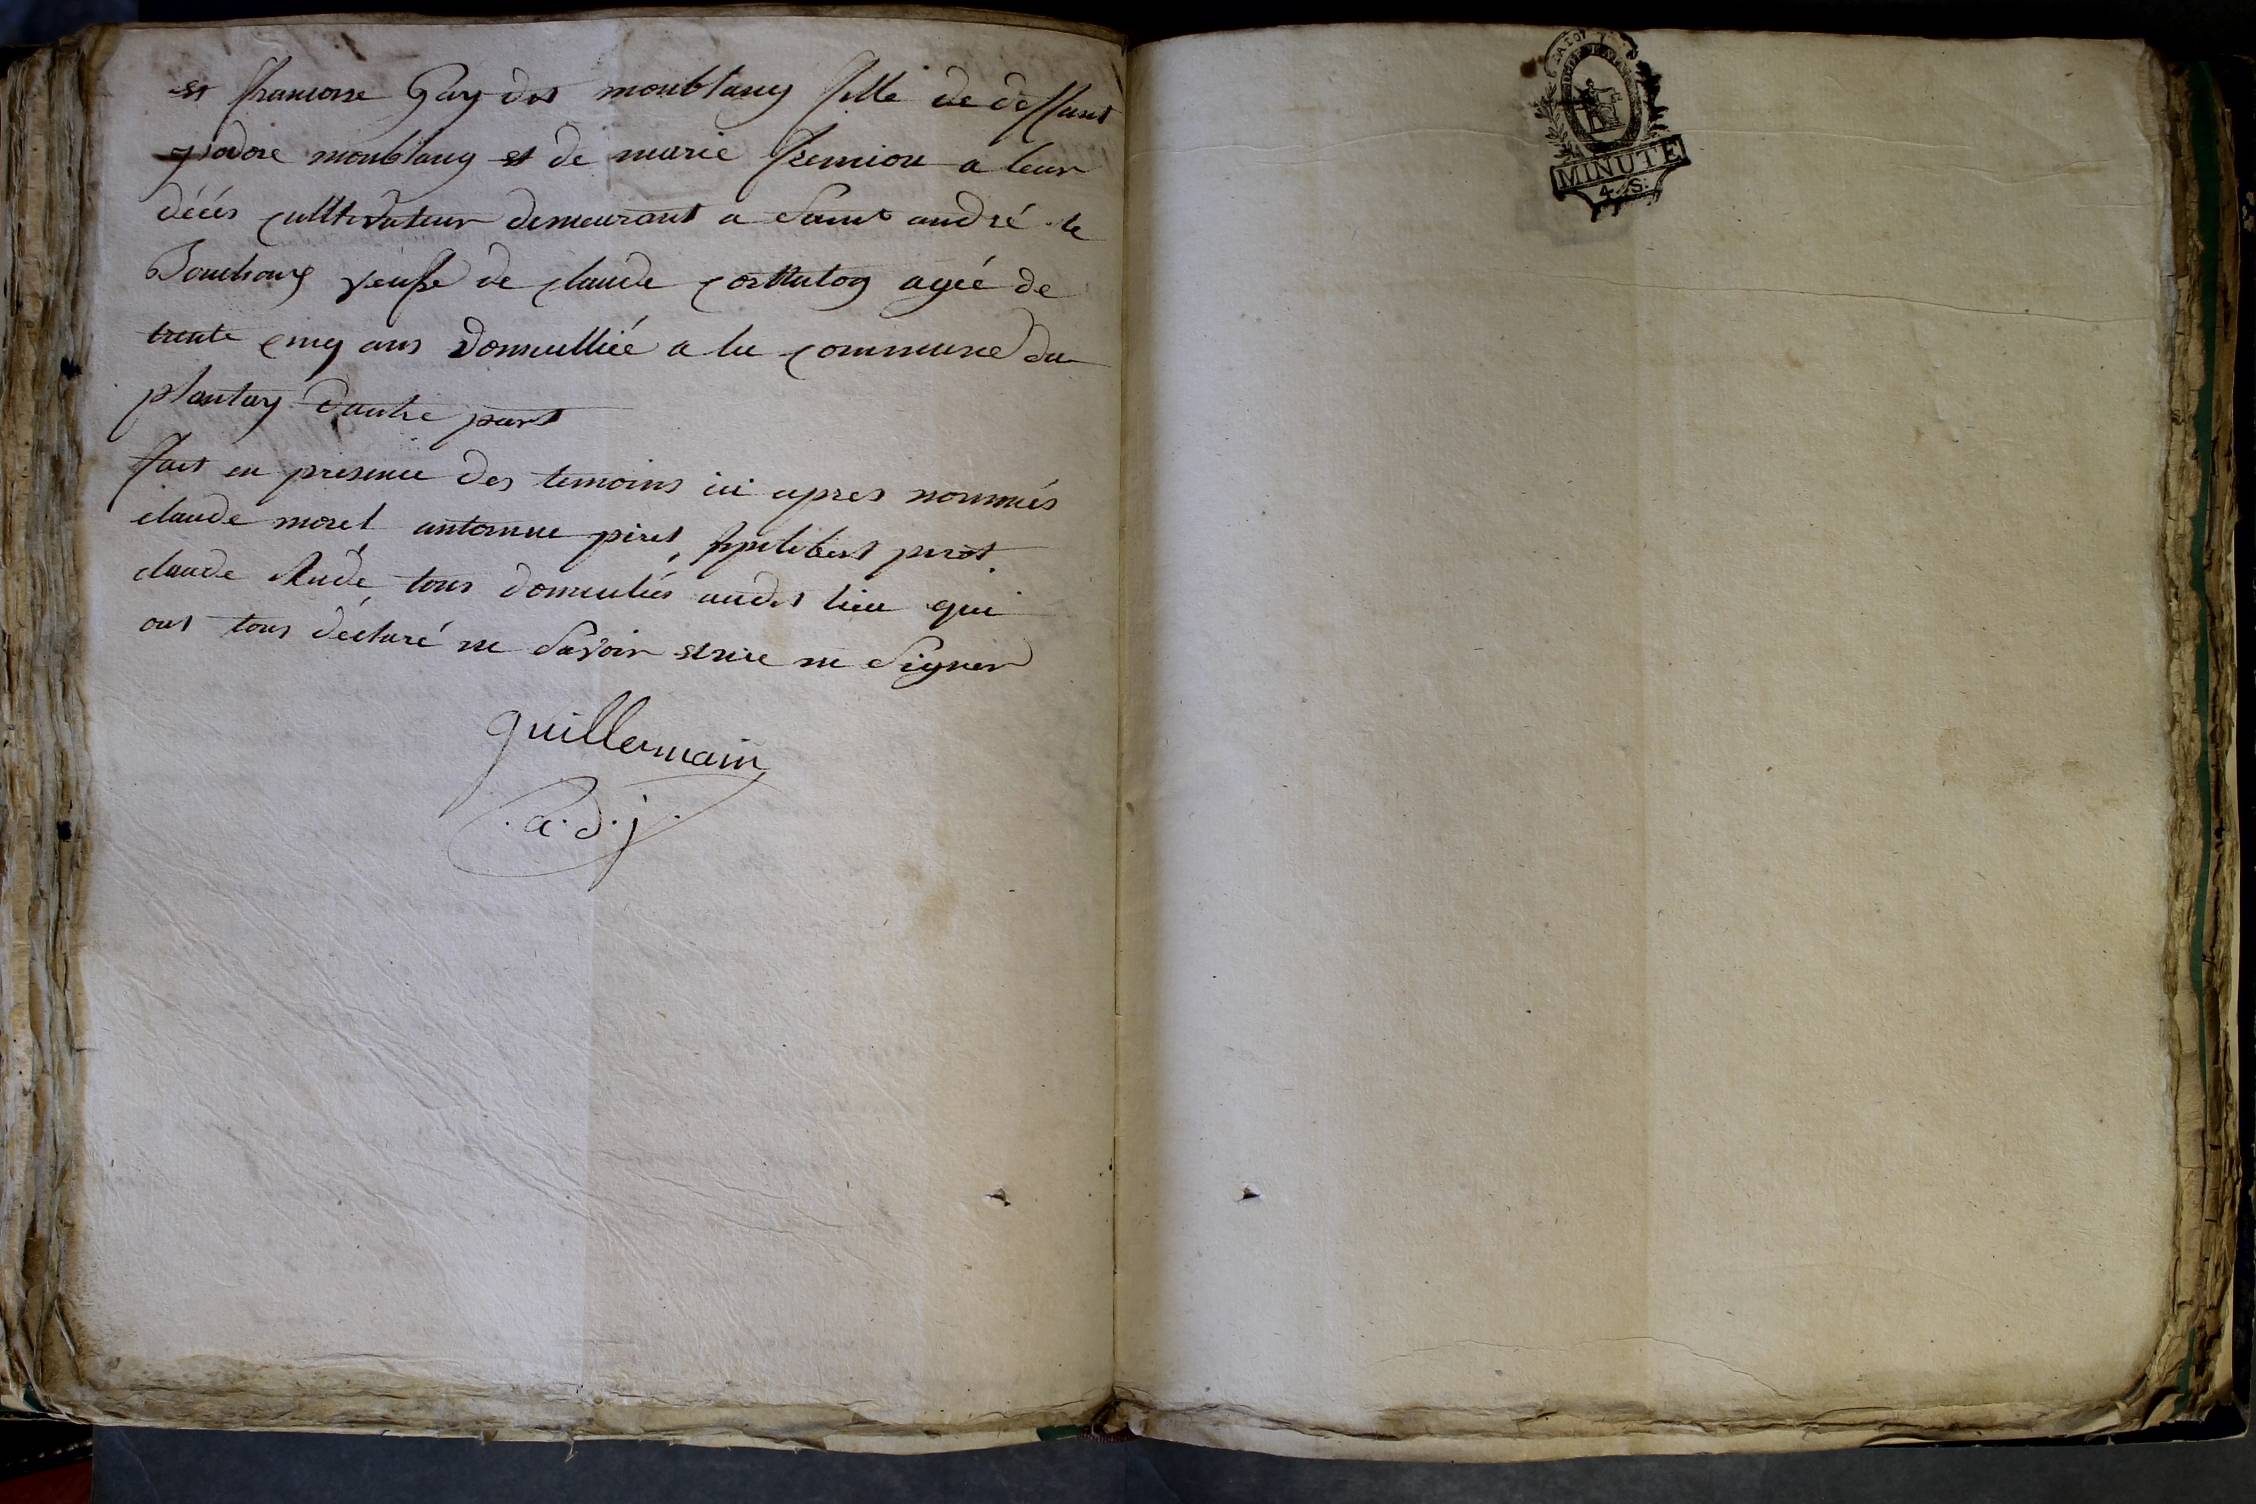 et francoise Guy dit monblanq fille de deffunt
monblanq et de marie fremion a leur
décés culltivateur demeurant a Saint andré le
Bouchoux veuffe de claude agée de
trente cinq ans domicilliée a la commune du
plantay d'autre part
fait en presence des temoins cii apres nommés
claude morel antoinne piret philibert perot
claude Rudé tous domiciliés audit lieu qui
ont tous déclaré ne Savoir ecrire ni Signer
guillermain
.a.d.j.
MINUTE
4. S.